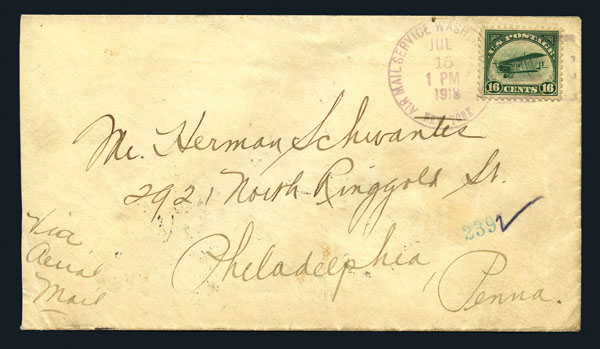 AIR MAIL SERVICE WASH
JUL
15
1 PM
1918
NEW YORK
U.S. POSTAGE
16 CENTS 16
Mr. Herman Schwantes
2921 North Ringgold St.
Philadelphia,
Penna.
2392
Via
Aerial
Mail